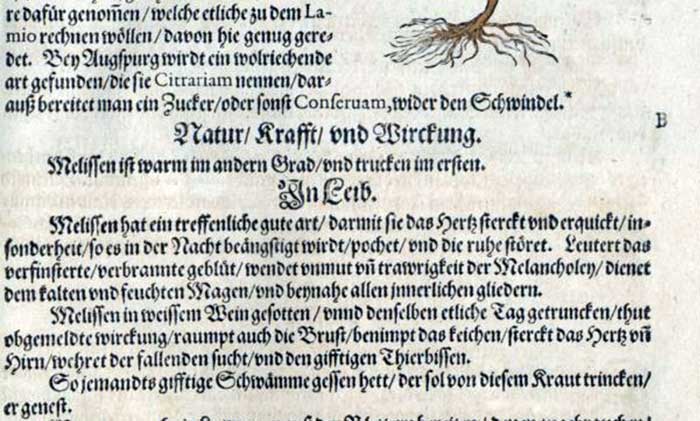 re dafür genom̃en/welche etliche zu dem La-
mio rechnen wöllen/davon hie genug gere-
det. Bey Augspurg wirdt ein wolriechende
art gefunden/die sie Citrariam nennen/dar-
auß bereitet man ein Zucker/oder sonst Conseruam, wider den Schwindel.*
B
Natur/ Krafft/ vnd Wirckung.
Melissen ist warm im andern Grad/vnd trucken im ersten.
In Leib.
Melissen hat ein treffenliche gute art/ darmit sie das Hertz sterckt vnd erquickt/ in-
sonderheit/so es in der Nacht beängstigt wirdt/pochet/ vnd die ruhe störet. Leutert das
verfinsterte/verbrannte geblüt/ wendet vnmut vñ trawrigkeit der Melancholey/ dienet
dem kalten vnd feuchten Magen/vnd beynahe allen jnnerlichen gliedern.
Melissen in weissem Wein gesotten / vnnd denselben etliche Tag getruncken/thut
obgemeldte wirckung/raumpt auch die Brust/benimpt das keichen/sterckt das Hertz vñ
Hirn/wehret der fallenden sucht/vnd den gifftigen Thierbissen.
So jemandts gifftige Schwämme gessen hett/ der sol von diesem Kraut trincken/
er genest.